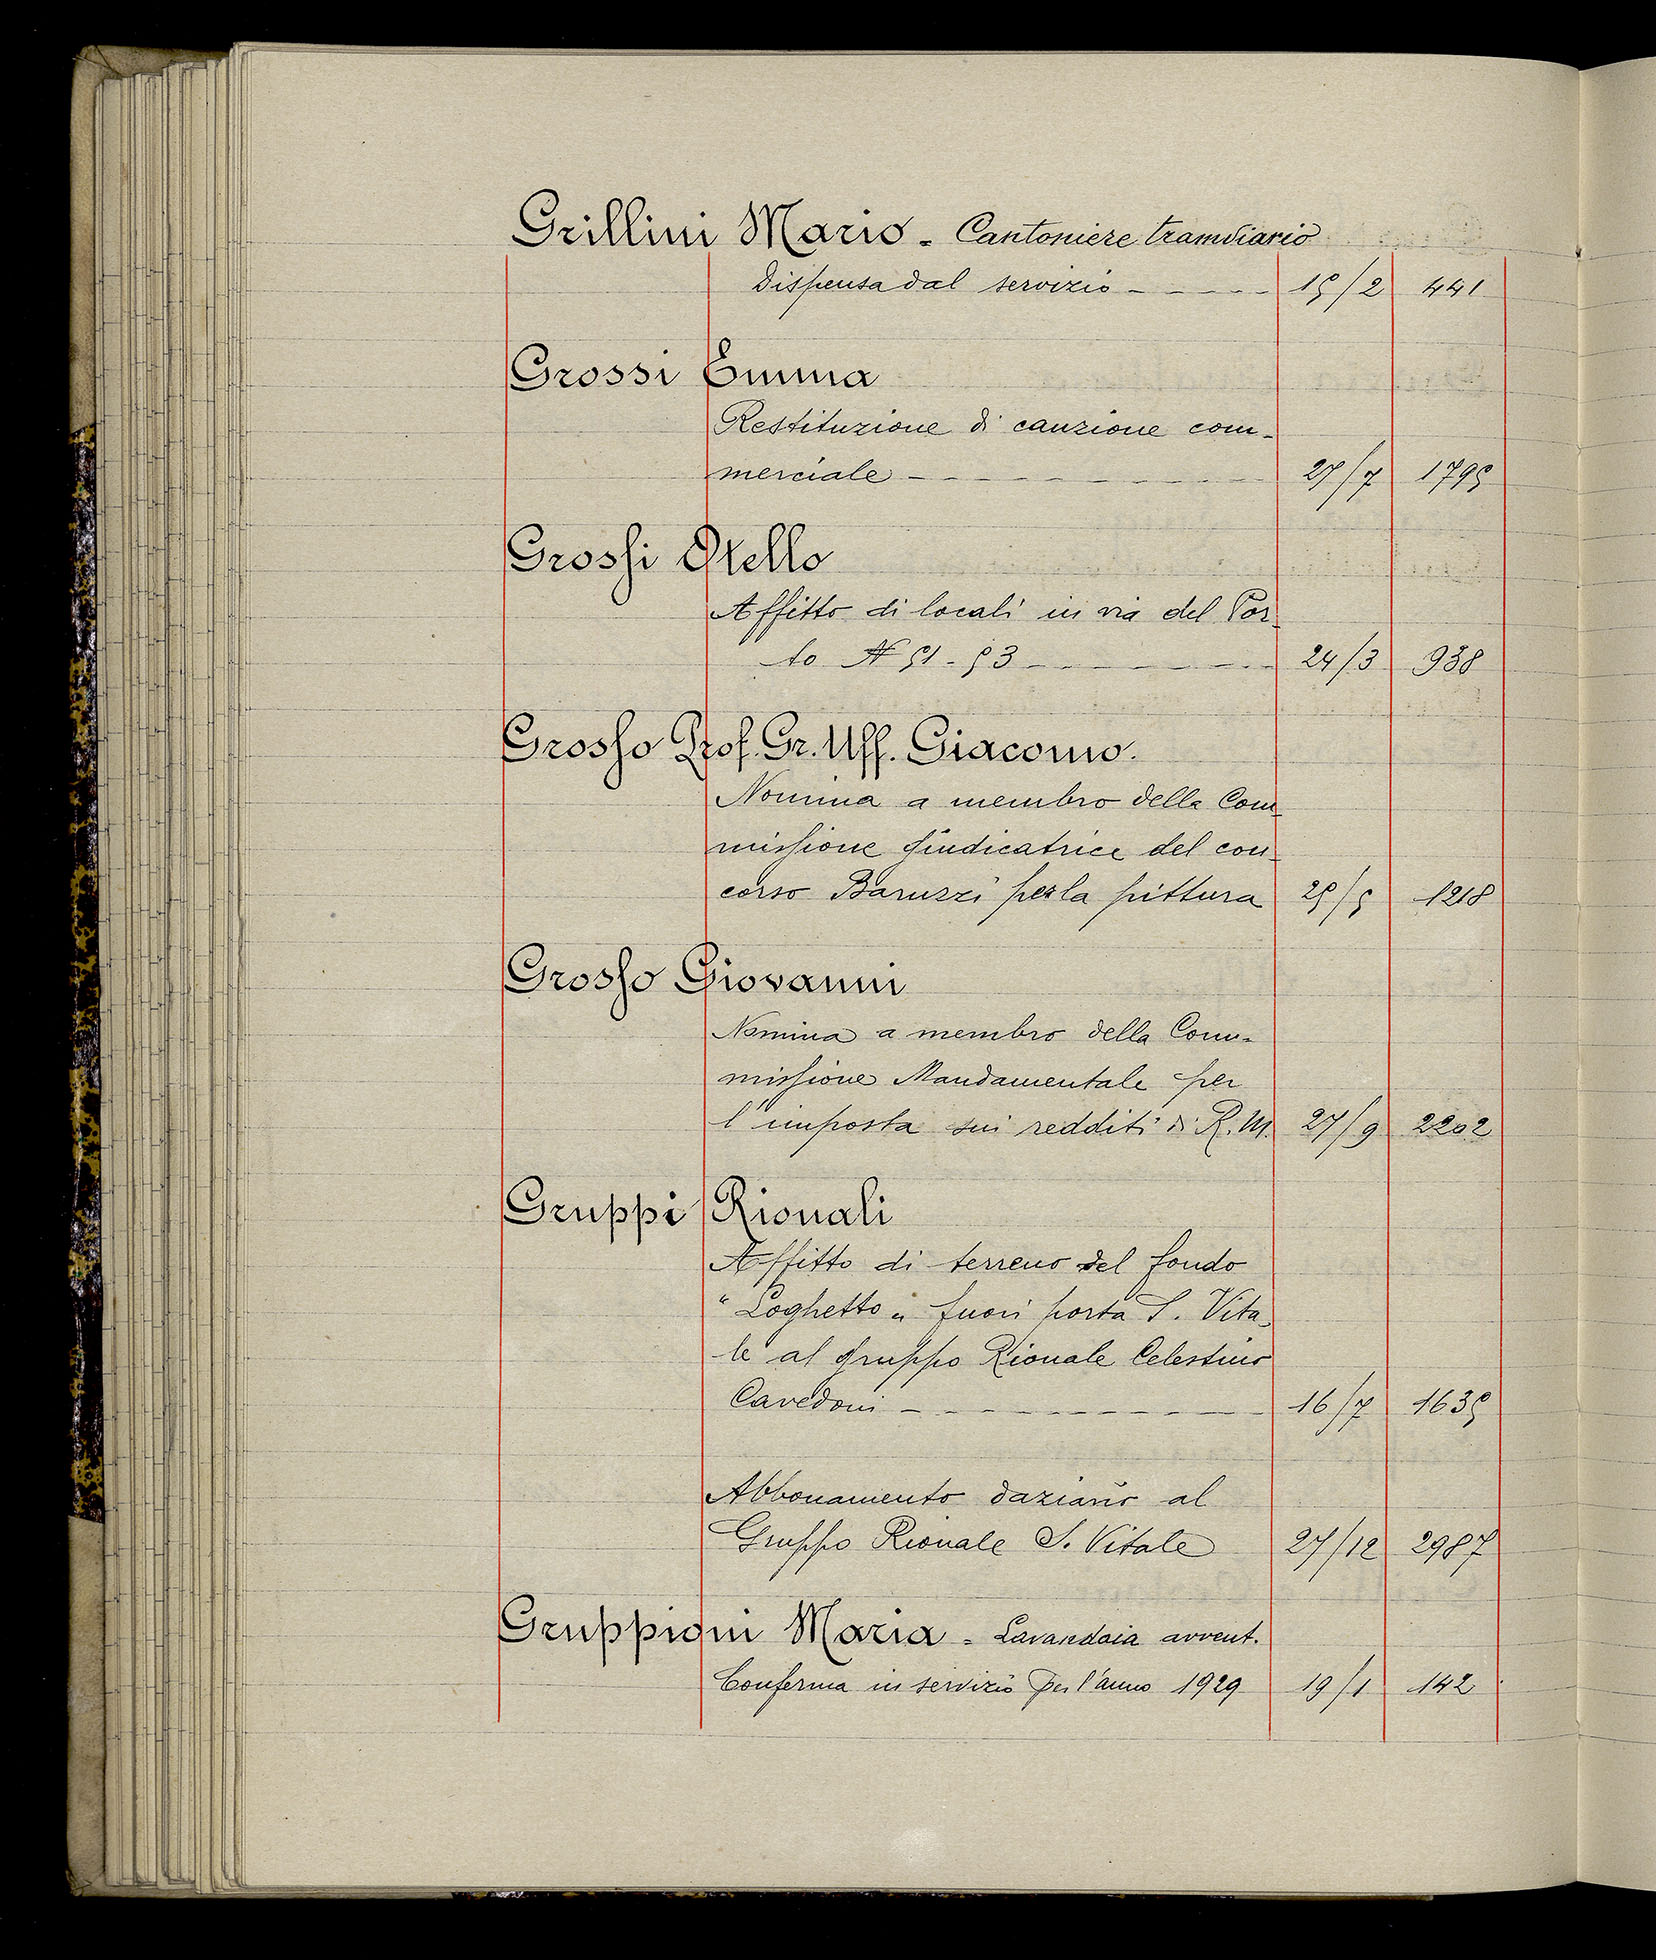 Grillini Mario - Cantoniere tramviario
Dispensa dal servizio - - - - - 15/2 441
Grossi Emma
Restituzione di cauzione com-
merciale - - - - - - - - 27/7 1795
Grossi Otello
Affitto di locali in via del Por-
to N 51-53 - - - - - - - 24/3 938
Grosso Prof. Gr. Uff. Giacomo.
Nomina a membro della Com-
missione giudicatrice del con-
corso Baruzzi per la pittura 25/5 1218
Grosso Giovanni
Nomina a membro della Com-
missione Mandamentale per
l'imposta sui redditi di R.M. 27/9 2202
Gruppi Rionali
Affitto di terreno del fondo
"Loghetto" fuori porta S. Vita-
le al gruppo Rionale Celestino
Cavedoni - - - - - - - - 16/7 1635
Abbonamento daziario al
Gruppo Rionale S. Vitale 27/12 2987
Gruppioni Maria - Lavandaia avvent.
Conferma in servizio per l'anno 1929 19/1 142